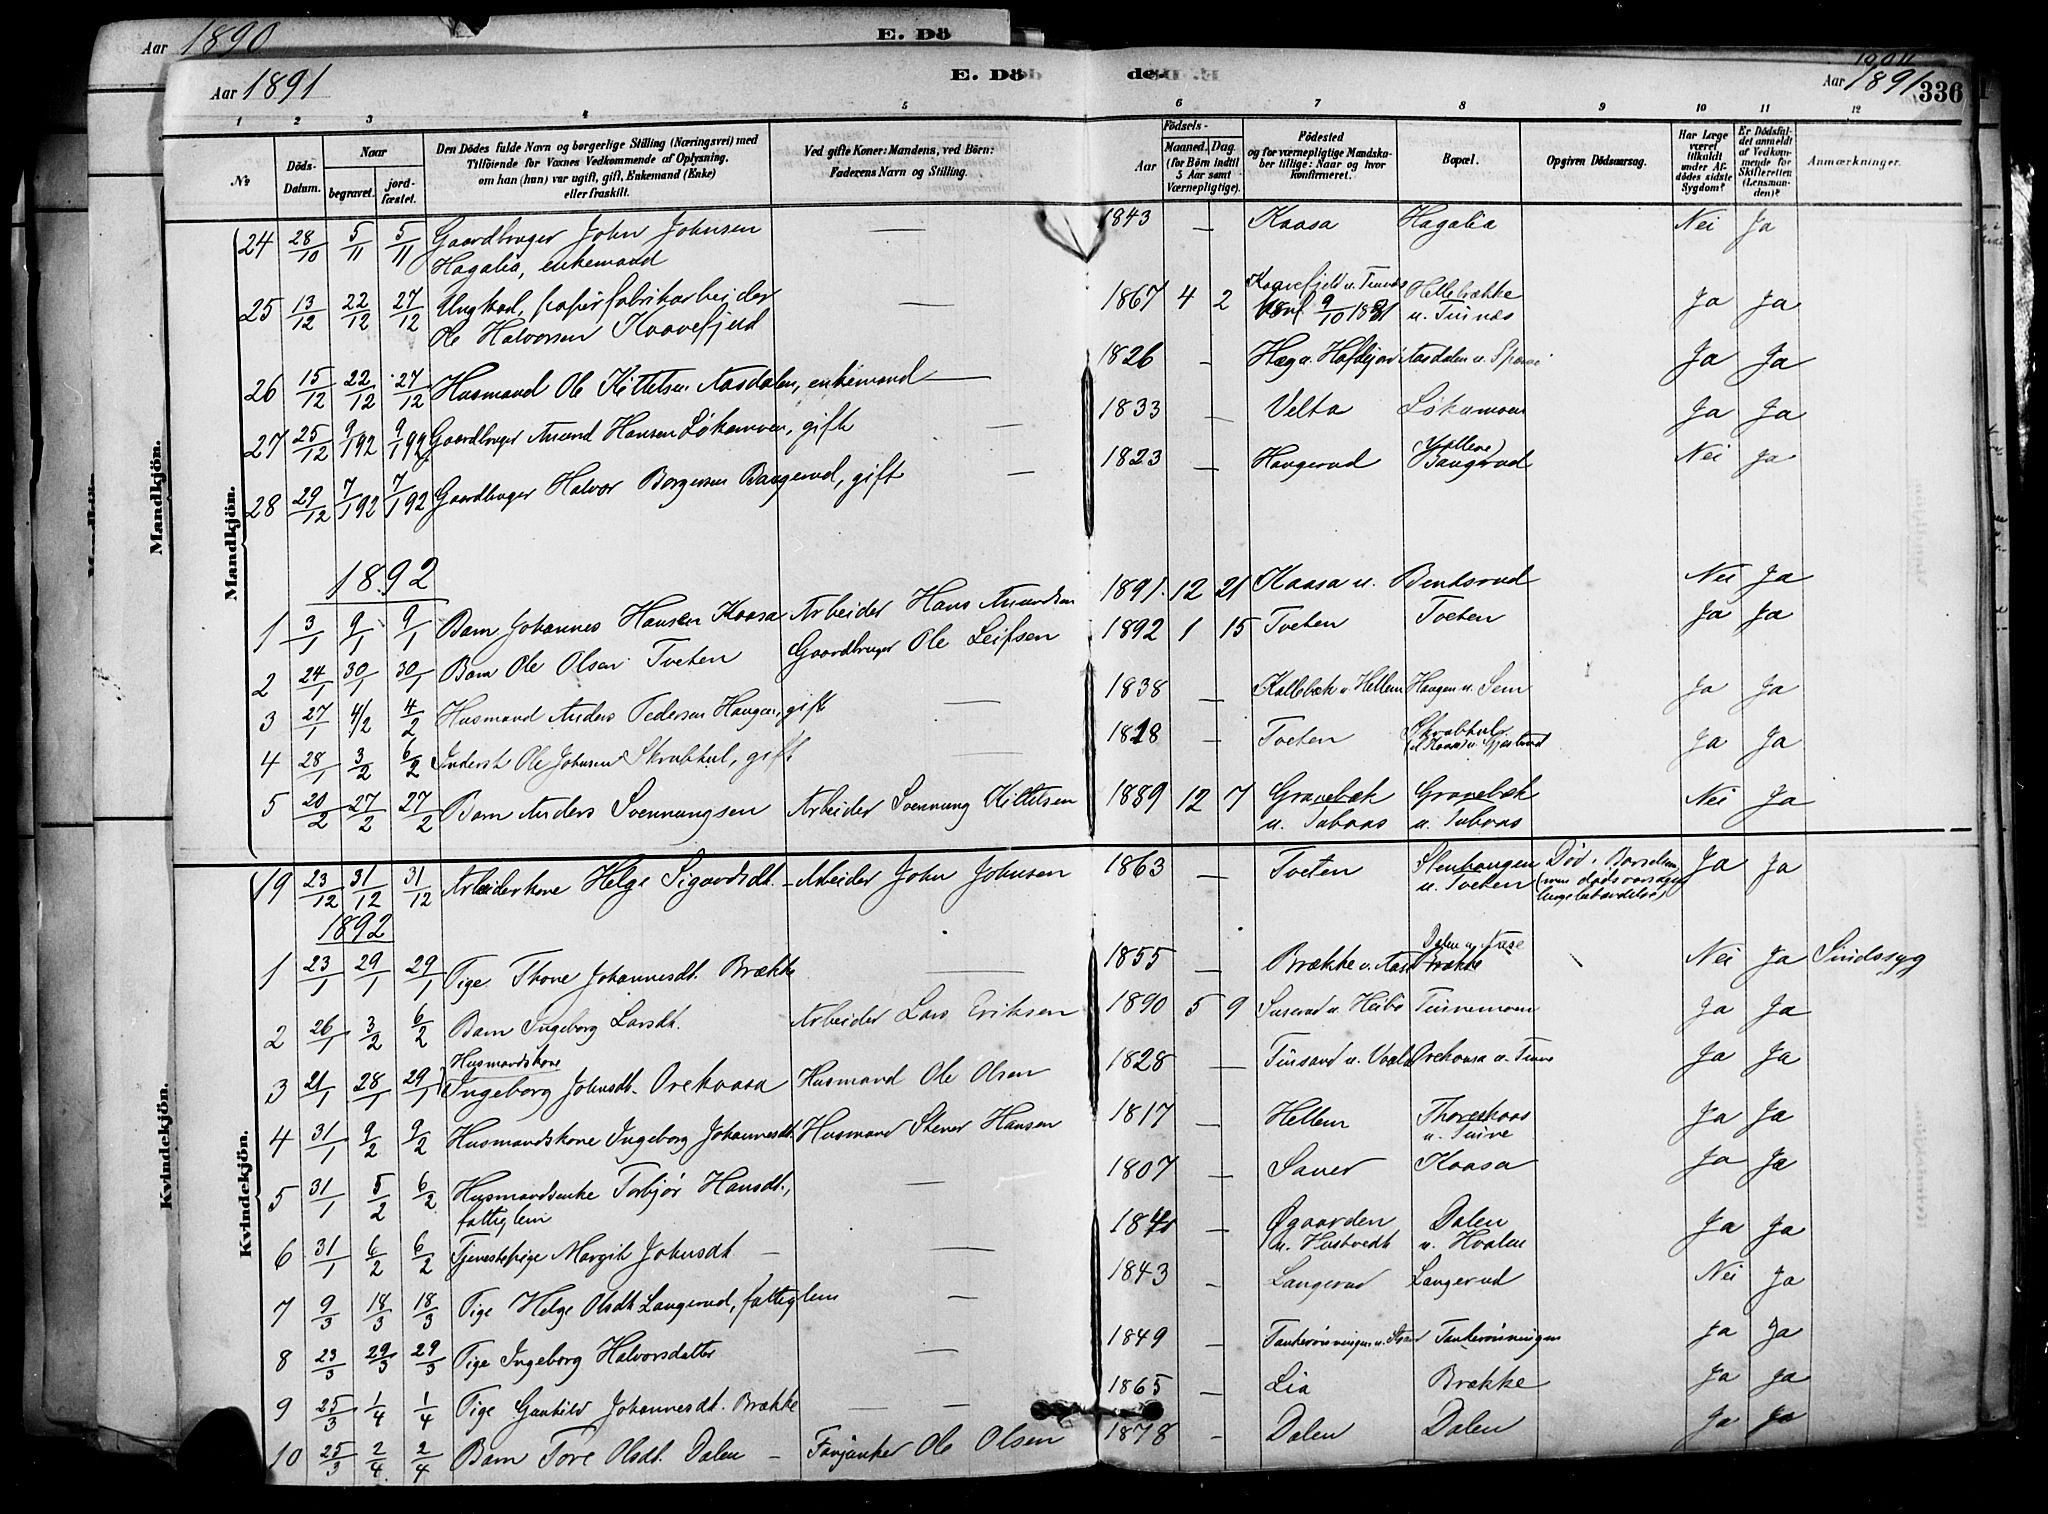 Aar 1890 E. Dö
Aar 1891 E. Dö de. Aar 1891 336
1 2 3 4 5 6 7 8 9 10 11 12
№
Döds-Datum.
Naar
begravet. jordfæstet.
Den Dödes fulde Navn og borgerlige Stilling (Næringsvei) med
Tilföiende for Voxnes Vedkommende af Oplysning,
om han (hun) var ugift, gift, Enkemand (Enke)
eller fraskilt.
Ved gifte Koner: Mandens, ved Börn:
Faderens Navn og Stilling.
Födsels-
Aar Maaned. Dag.
(for Börn indtil 5 Aar samt Værnepligtige).
Födested
og for værnepligtige Mandskaber tillige: Naar og hvor konfirmeret.
Bopæl.
Opgiven Dödsaarsag.
Har Læge været tilkaldt under Afdödes sidste Sygdom?
Er Dödsfaldet anmeldt af Vedkommende for Skifteretten (Lensmanden)?
Anmærkninger.
Mandkjön.
24 28/10 5/11 5/11 Gaardbruger John Johnsen — 1843 — Kaasa Hagalia Nei Ja
Hagalia, enkemand
25 13/12 22/12 27/12 Ungkarl, papirfabrikarbeider — 1867 4 2 Kaavefjeld u. Tinnæs Hellebrække Ja Ja
Ole Halvorsen Kaavefjeld Konf 9/10 1881 u. Tinnæs
26 15/12 22/12 27/12 Husmand Ole Kittelsen Aasdalen, enkemand — 1826 — Aasdalen u. Ja Ja
27 25/12 9/1 92 9/1 92 Gaardbruger Amund Hansen Løkamoen, gift — 1833 — Velta Løkamoen Ja Ja
28 29/12 7/1 92 7/1 92 Gaardbruger Halvor Borgersen Baugerud, gift — 1823 — Haugerud Baugerud Nei Ja
1892
1 3/1 9/1 9/1 Barn Johannes Hansen Kaasa Arbeider Hans Amundsen 1891 12 21 Kaasa u. Bentsrud Nei Ja
2 24/1 30/1 30/1 Barn Ole Olsen Tveten Gaardbruger Ole Leifsen 1892 1 15 Tveten Tveten Ja Ja
3 27/1 4/2 4/2 Husmand Anders Pedersen Haugen, gift — 1838 — Kallebæk u. Hellem Haugen u. Sem Ja Ja
4 28/1 3/2 6/2 Inderst Ole Johnsen Skrubhul, gift — 1818 — Tveten Skrubhul Ja Ja
5 20/2 27/2 27/2 Barn Anders Svennungsen Arbeider Svennung Kittelsen 1889 12 7 Gravebæk Gravebæk Nei Ja
u. Taboas u. Taboas
Kvindekjön.
19 23/12 31/12 31/12 Arbeiderkone Helge Sigurdsdt. — Arbeider John Johnsen 1863 — Tveten Stenhaugen Død i Barselseng Ja Ja
u. Tveten
1892
1 23/1 29/1 29/1 Pige Thone Johannesdt. Brække — 1855 — Brække u. Aase Dalen u. Aase Nei Ja Sindssyg
Brække
2 26/1 3/2 6/2 Barn Ingeborg Larsdt. Arbeider Lars Eriksen 1890 5 9 Suserud u. Heibø Tinnemoen Ja Ja
3 21/1 28/1 29/1 Husmandskone
Ingeborg Johnsdt. Orekaasa Husmand Ole Olsen 1828 — Tinsand u. Orekaasa u. Tinne Ja Ja
4 31/1 9/2 9/2 Husmandskone Ingeborg Johannesdt. Husmand Stener Hansen 1817 — Hellem Ja Ja
u. Tinne
5 31/1 5/2 6/2 Husmandsenke Torbjør Hansdt., — 1807 — Sauer Kaasa Ja Ja
fattiglem
6 31/1 6/2 6/2 Tjenestepige Margit Johnsdt — 1841 — Øgaarden Dalen Ja Ja
u. Hustvedt u. Hvalen
7 9/3 18/3 18/3 Pige Helge Olsdt. Langerud, fattiglem — 1843 — Langerud Langerud Nei Ja
8 23/3 29/3 29/3 Pige Ingeborg Halvorsdatter — 1849 — Tankerønningen Ja Ja
9 25/3 1/4 1/4 Pige Gunhild Johannesdt. Brække — 1865 — Lia Brække Ja Ja
10 25/3 2/4 2/4 Barn Tore Olsdt. Dalen — Forjænker Ole Olsen 1878 — Dalen Dalen Ja Ja